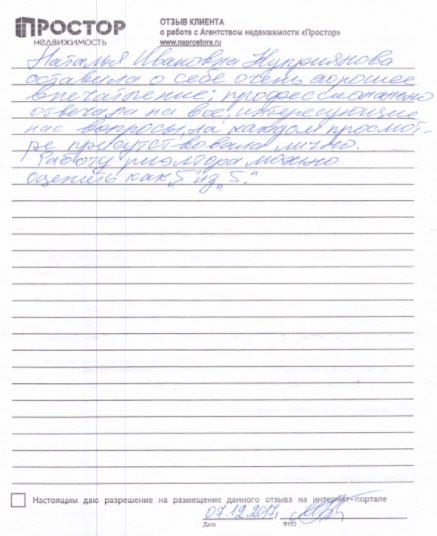 ПРОСТОР
НЕДВИЖИМОСТЬ
ОТЗЫВ КЛИЕНТА
о работе с Агентством недвижимости «Простор»
www.naprostore.ru
Наталья Ивановна Куприянова
оставила о себе очень хорошее
впечатление: профессионально
отвечала на все интересующие
нас вопросы, на каждом просмот-
ре присутствовала лично.
Работу риэлтора можно
оценить как „5“ из „5“.
Настоящим даю разрешение на размещение данного отзыва на интернет-портале
07.12.2017г
Дата
ФИО